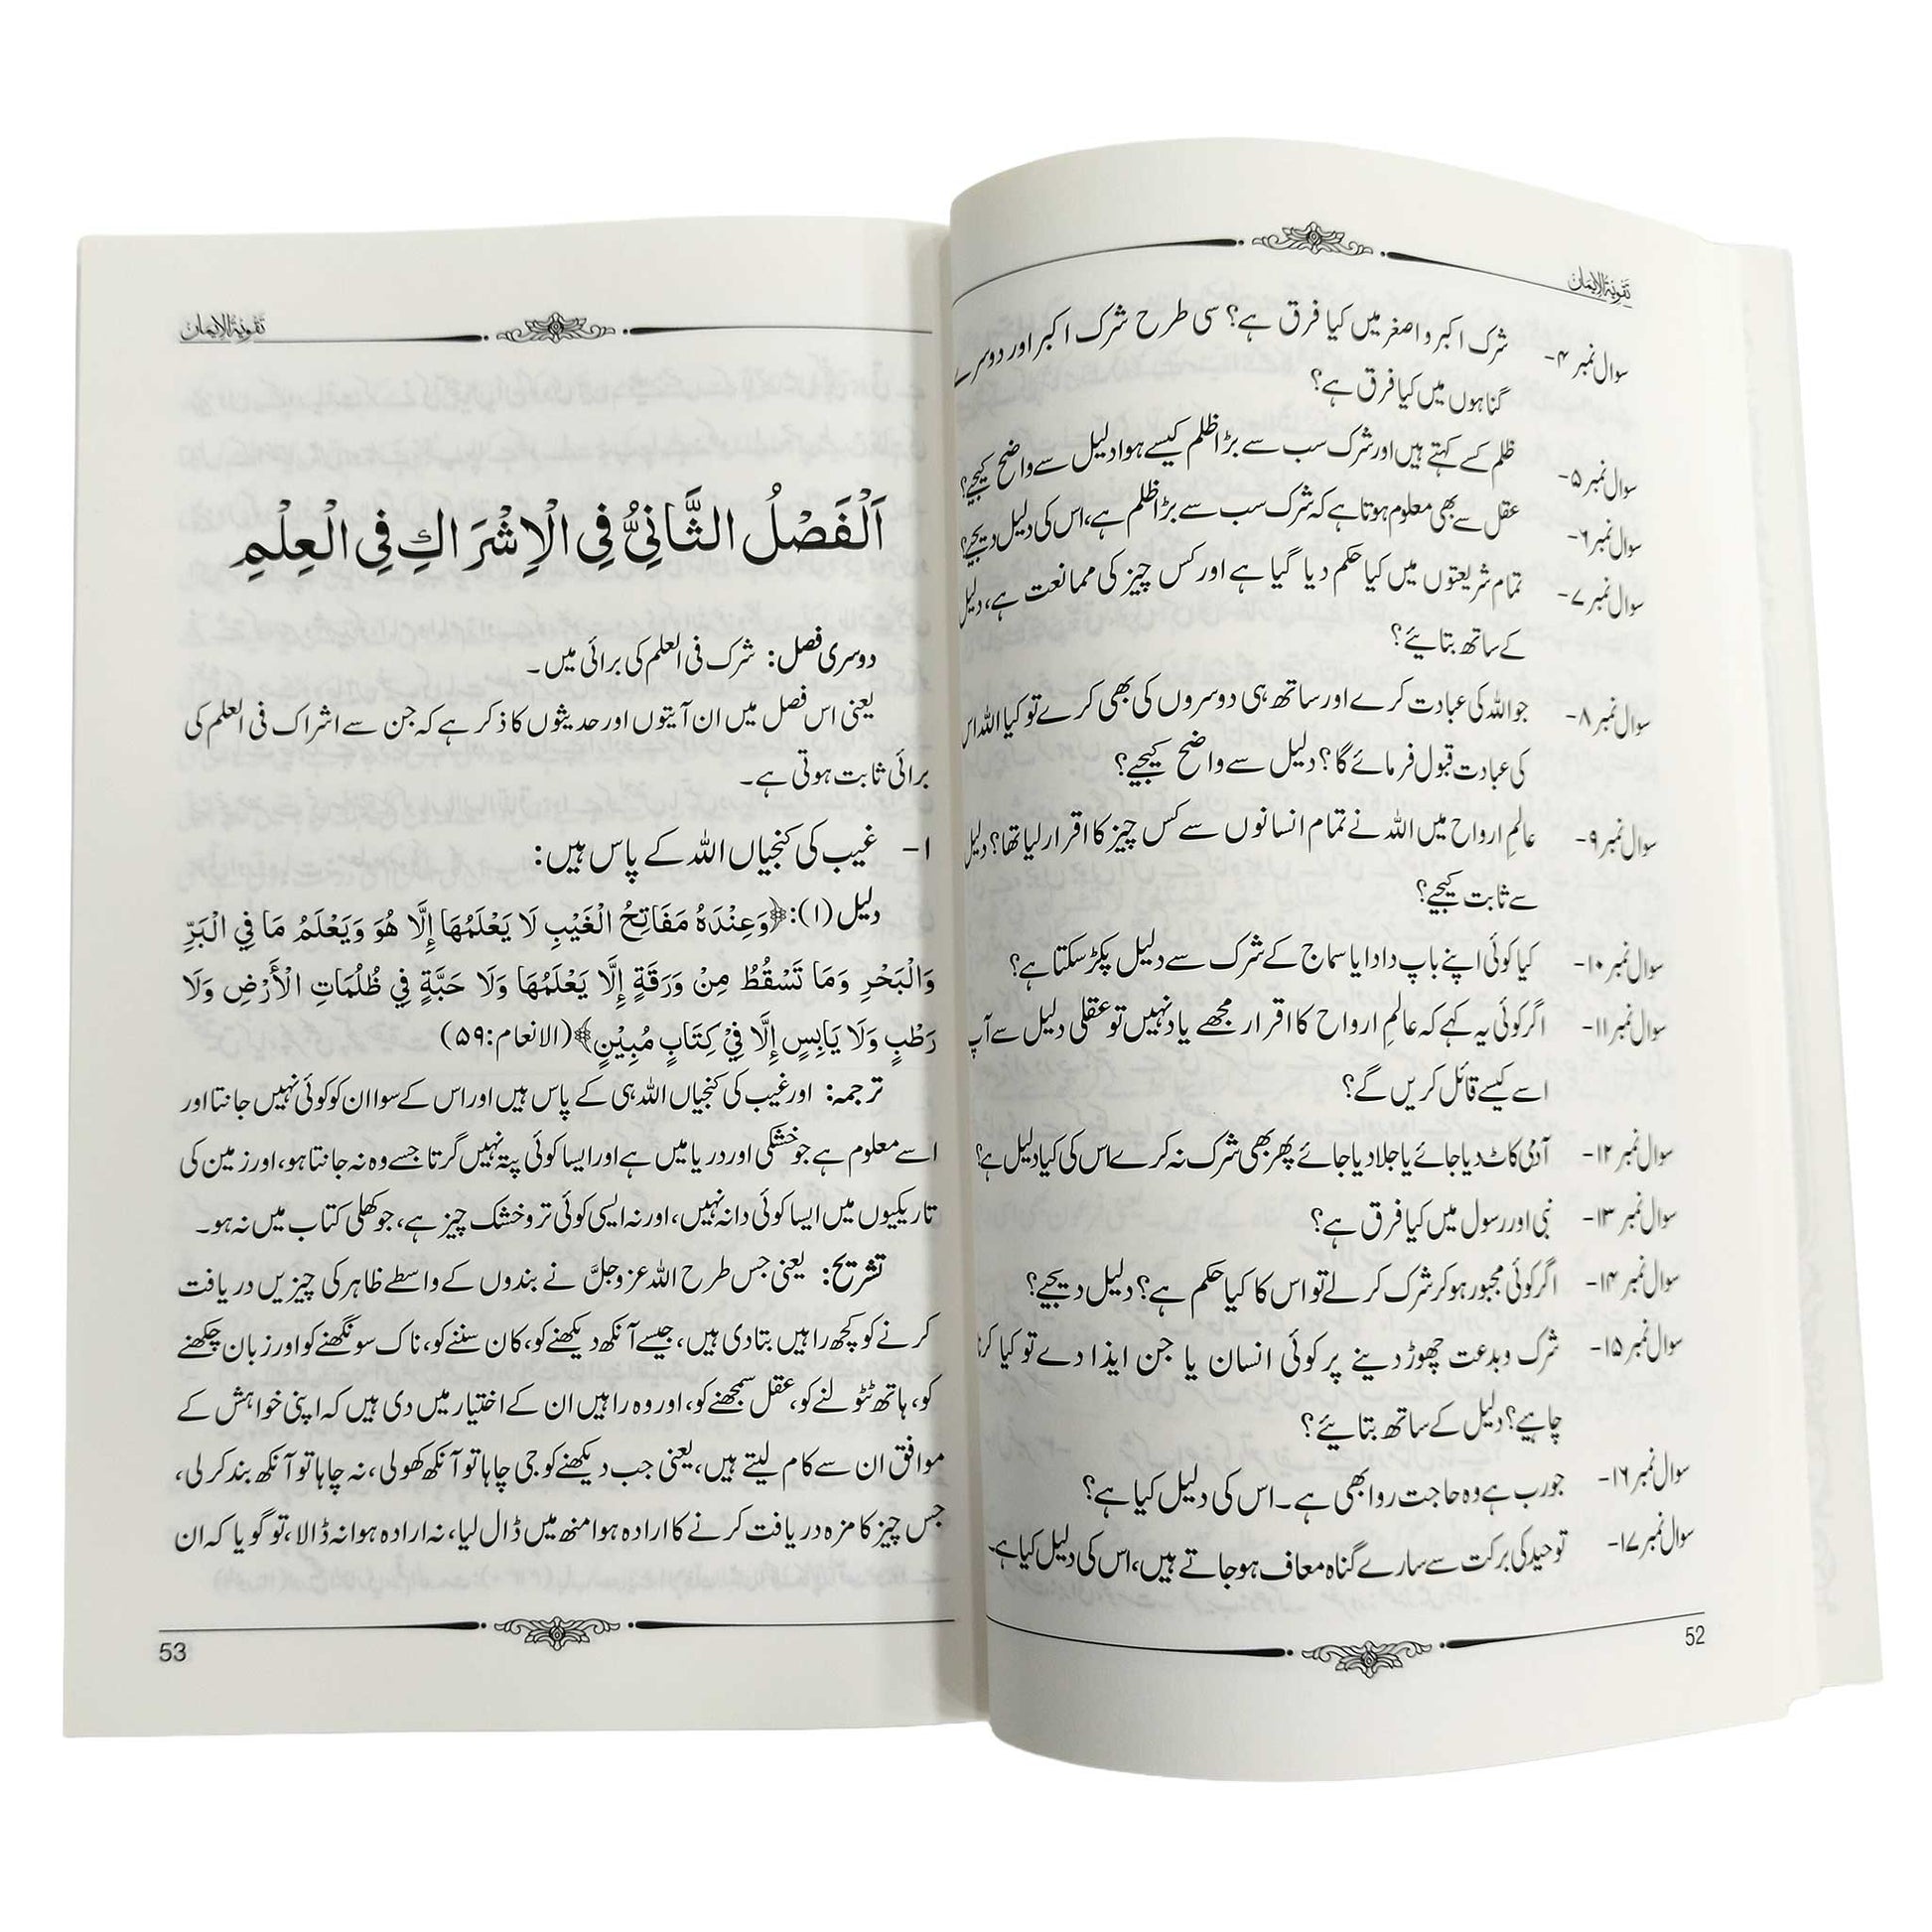 تقویۃ الإیمان
سوال نمبر ۴- شرک اکبر و اصغر میں کیا فرق ہے؟ سی طرح شرک اکبر اور دوسرے
گناہوں میں کیا فرق ہے؟
سوال نمبر ۵- ظلم کسے کہتے ہیں اور شرک سب سے بڑا ظلم کیسے ہوا دلیل سے واضح کیجیے؟
سوال نمبر ۶- عقل سے بھی معلوم ہوتا ہے کہ شرک سب سے بڑا ظلم ہے، اس کی دلیل دیجیے؟
سوال نمبر ۷- تمام شریعتوں میں کیا حکم دیا گیا ہے اور کس چیز کی ممانعت ہے، دلیل
کے ساتھ بتائیے؟
سوال نمبر ۸- جو اللہ کی عبادت کرے اور ساتھ ہی دوسروں کی بھی کرے تو کیا اللہ اس
کی عبادت قبول فرمائے گا؟ دلیل سے واضح کیجیے؟
سوال نمبر ۹- عالمِ ارواح میں اللہ نے تمام انسانوں سے کس چیز کا اقرار لیا تھا؟ دلیل
سے ثابت کیجیے؟
سوال نمبر ۱۰- کیا کوئی اپنے باپ دادا یا سماج کے شرک سے دلیل پکڑ سکتا ہے؟
سوال نمبر ۱۱- اگر کوئی یہ کہے کہ عالمِ ارواح کا اقرار مجھے یاد نہیں تو عقلی دلیل سے آپ
اسے کیسے قائل کریں گے؟
سوال نمبر ۱۲- آدمی کاٹ دیا جائے یا جلا دیا جائے پھر بھی شرک نہ کرے اس کی کیا دلیل ہے؟
سوال نمبر ۱۳- نبی اور رسول میں کیا فرق ہے؟
سوال نمبر ۱۴- اگر کوئی مجبور ہو کر شرک کر لے تو اس کا کیا حکم ہے؟ دلیل دیجیے؟
سوال نمبر ۱۵- شرک و بدعت چھوڑ دینے پر کوئی انسان یا جن ایذا دے تو کیا کرنا
چاہیے؟ دلیل کے ساتھ بتائیے؟
سوال نمبر ۱۶- جو رب ہے وہ حاجت روا بھی ہے۔ اس کی دلیل کیا ہے؟
سوال نمبر ۱۷- توحید کی برکت سے سارے گناہ معاف ہو جاتے ہیں، اس کی دلیل کیا ہے
52
تقویۃ الإیمان
اَلْفَصْلُ الثَّانِيُّ فِي الْاِشْرَاكِ فِي الْعِلْمِ
دوسری فصل: شرک فی العلم کی برائی میں۔
یعنی اس فصل میں ان آیتوں اور حدیثوں کا ذکر ہے کہ جن سے اشراک فی العلم کی
برائی ثابت ہوتی ہے۔
۱- غیب کی کنجیاں اللہ کے پاس ہیں:
دلیل (۱): ﴿وَعِنْدَهُ مَفَاتِحُ الْغَيْبِ لَا يَعْلَمُهَا إِلَّا هُوَ وَيَعْلَمُ مَا فِي الْبَرِّ
وَالْبَحْرِ وَمَا تَسْقُطُ مِنْ وَرَقَةٍ إِلَّا يَعْلَمُهَا وَلَا حَبَّةٍ فِي ظُلُمَاتِ الْأَرْضِ وَلَا
رَطْبٍ وَلَا يَابِسٍ إِلَّا فِيْ كِتَابٍ مُبِيْنٍ﴾ (الانعام: ۵۹)
ترجمہ: اور غیب کی کنجیاں اللہ ہی کے پاس ہیں اور اس کے سوا ان کو کوئی نہیں جانتا اور
اسے معلوم ہے جو خشکی اور دریا میں ہے اور ایسا کوئی پتہ نہیں گرتا جسے وہ نہ جانتا ہو، اور زمین کی
تاریکیوں میں ایسا کوئی دانہ نہیں، اور نہ ایسی کوئی تر و خشک چیز ہے، جو کھلی کتاب میں نہ ہو۔
تشریح: یعنی جس طرح اللہ عزوجلَّ نے بندوں کے واسطے ظاہر کی چیزیں دریافت
کرنے کو کچھ راہیں بتا دی ہیں، جیسے آنکھ دیکھنے کو، کان سننے کو، ناک سونگھنے کو اور زبان چکھنے
کو، ہاتھ ٹٹولنے کو، عقل سمجھنے کو، اور وہ راہیں ان کے اختیار میں دی ہیں کہ اپنی خواہش کے
موافق ان سے کام لیتے ہیں، یعنی جب دیکھنے کو جی چاہا تو آنکھ کھولی، نہ چاہا تو آنکھ بند کر لی،
جس چیز کا مزہ دریافت کرنے کا ارادہ ہوا منھ میں ڈال لیا، نہ ارادہ ہوا نہ ڈالا، تو گویا کہ ان
53